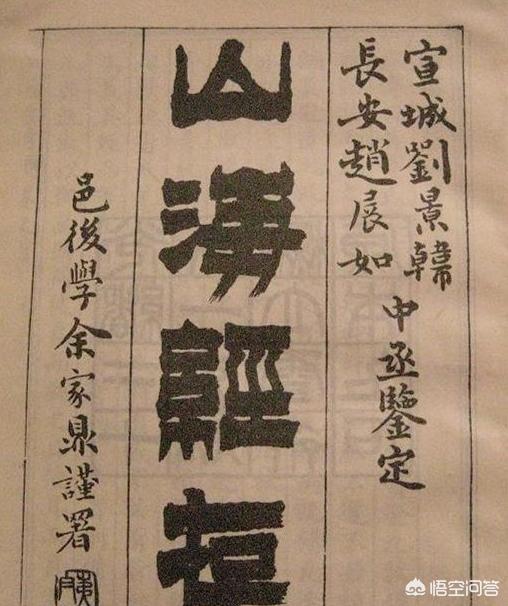 宣城劉景韓
長安趙展如
中丞鑒定
山海經存
邑後學余家鼎謹署
悟空问答